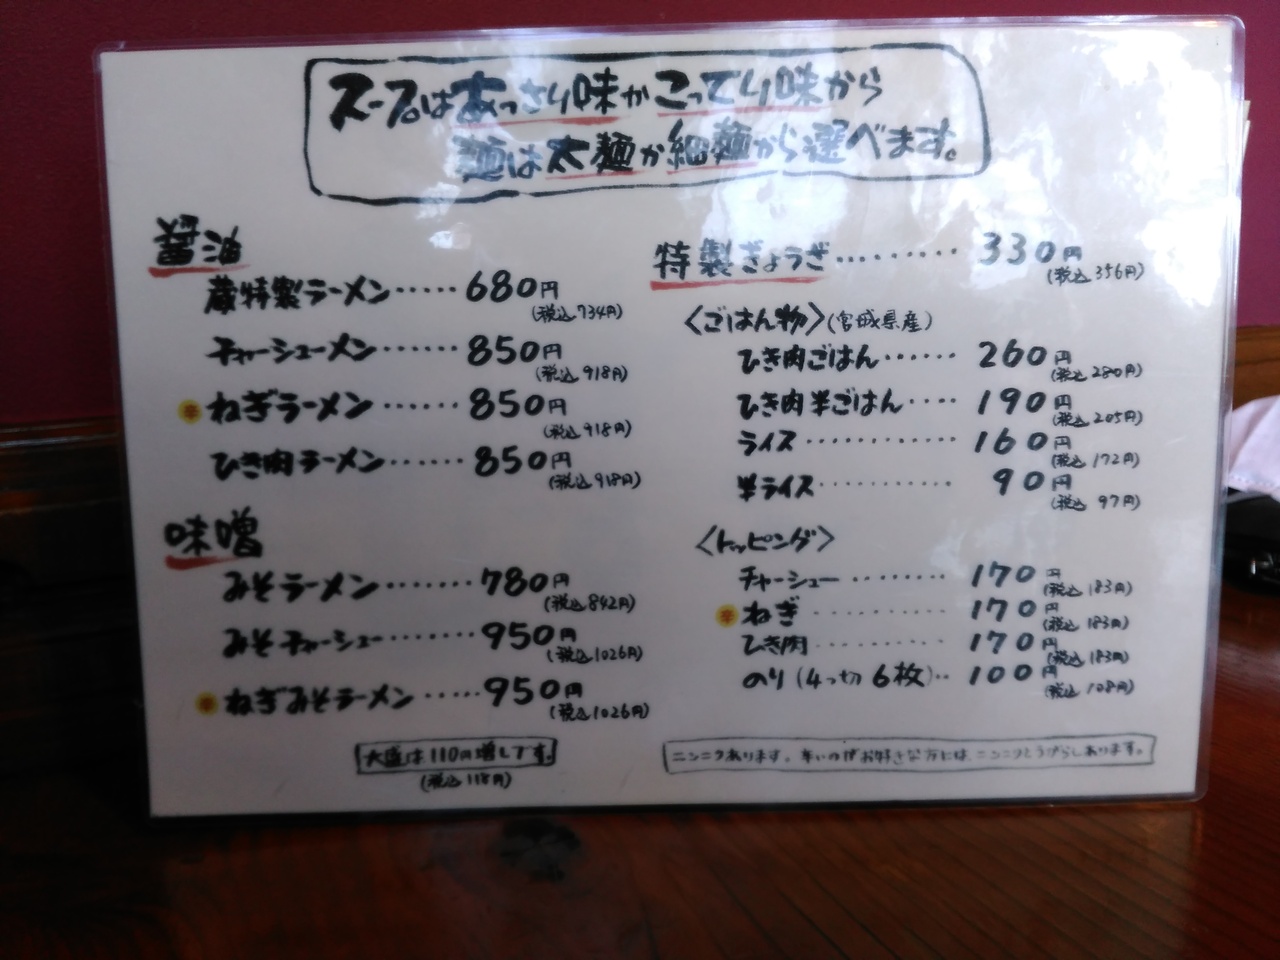 スープはあっさり味かこってり味から
麺は太麺か細麺から選べます。
醤油
蔵特製ラーメン‥‥‥680円
(税込734円)
チャーシューメン‥‥‥850円
(税込918円)
辛 ねぎラーメン‥‥‥850円
(税込918円)
ひき肉ラーメン‥‥‥850円
(税込918円)
味噌
みそラーメン‥‥‥780円
(税込842円)
みそチャーシュー‥‥‥950円
(税込1026円)
辛 ねぎみそラーメン‥‥‥950円
(税込1026円)
大盛は110円増しです。
(税込118円)
特製ぎょうざ‥‥‥330円
(税込356円)
〈ごはん物〉(宮城県産)
ひき肉ごはん‥‥‥260円
(税込280円)
ひき肉半ごはん‥‥190円
(税込205円)
ライス‥‥‥160円
(税込172円)
半ライス‥‥‥90円
(税込97円)
〈トッピング〉
チャーシュー‥‥‥170円
(税込183円)
辛 ねぎ‥‥‥170円
(税込183円)
ひき肉‥‥‥170円
(税込183円)
のり(4つ切6枚)‥100円
(税込108円)
ニンニクあります。辛いのがお好きな方には、ニンニクとうがらしあります。